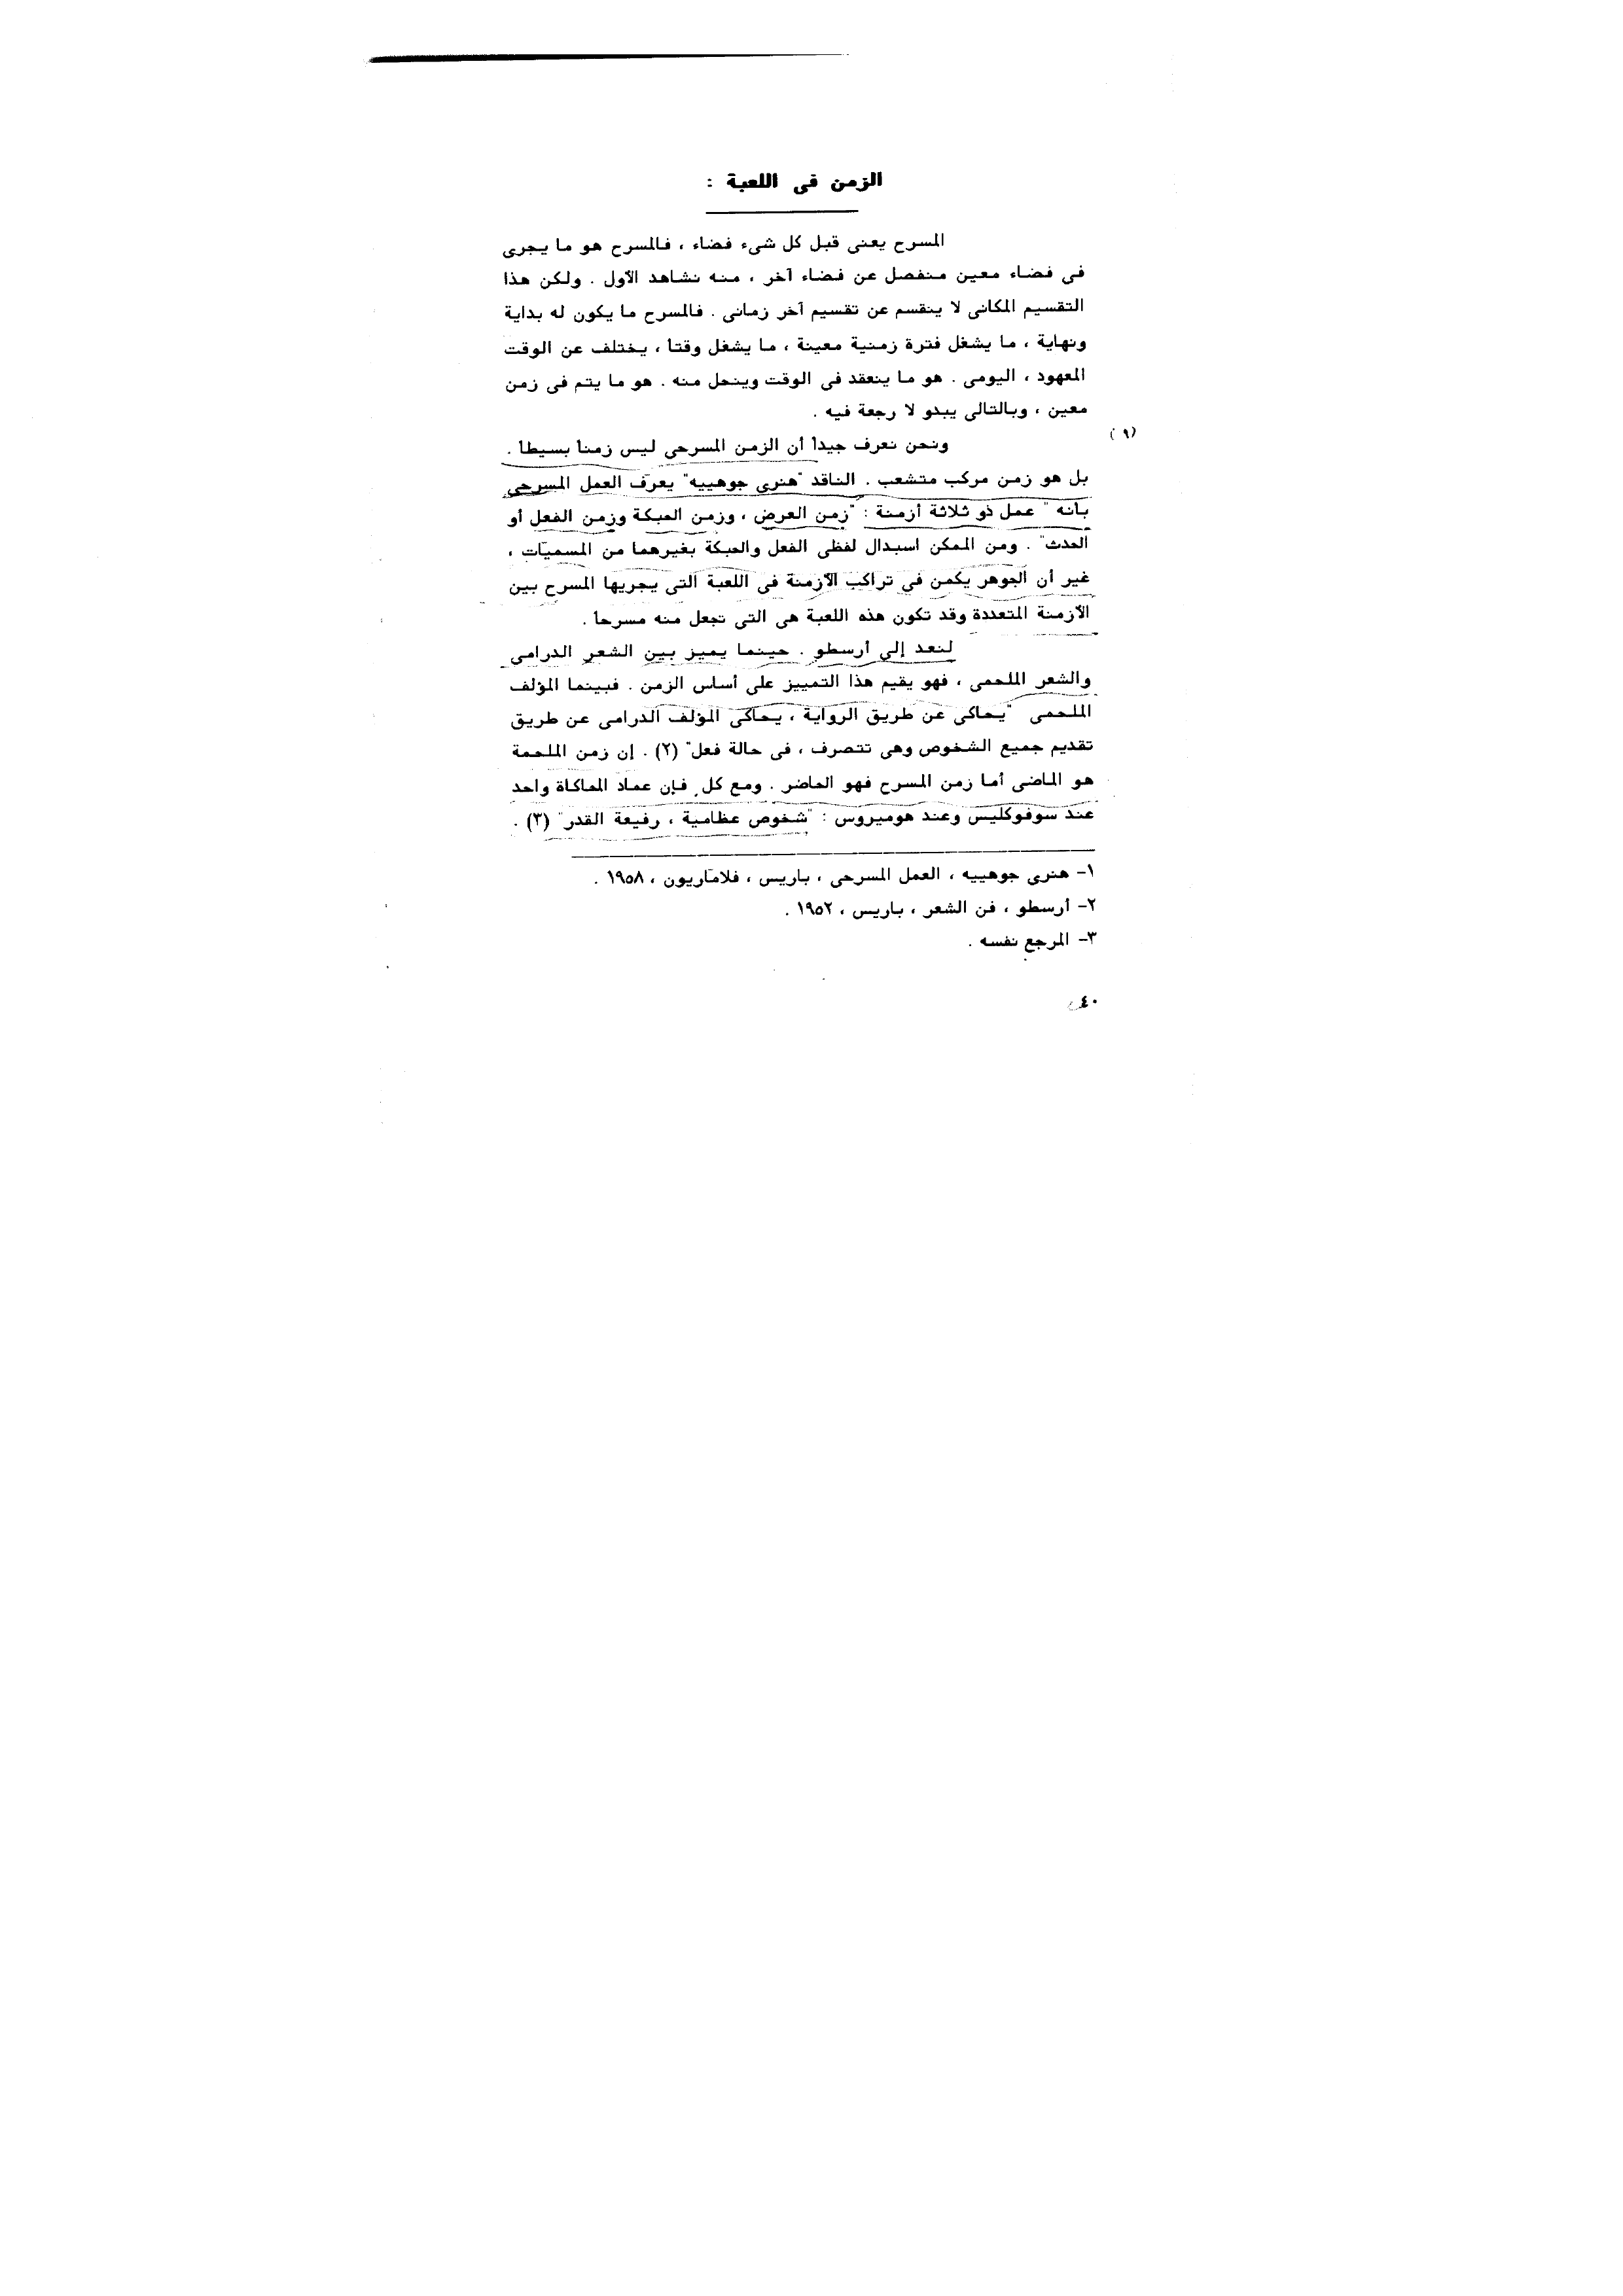 الزمن فى اللعبة :
المسرح يعنى قبل كل شىء فضاء ، فالمسرح هو ما يجرى
فى فضاء معين منفصل عن فضاء آخر ، منه نشاهد الأول . ولكن هذا
التقسيم المكانى لا ينقسم عن تقسيم آخر زمانى . فالمسرح ما يكون له بداية
ونهاية ، ما يشغل فترة زمنية معينة ، ما يشغل وقتا ، يختلف عن الوقت
المعهود ، اليومى . هو ما ينعقد فى الوقت وينحل منه . هو ما يتم فى زمن
معين ، وبالتالى يبدو لا رجعة فيه .
(٩)
ونحن نعرف جيدا أن الزمن المسرحى ليس زمنا بسيطا .
بل هو زمن مركب متشعب . الناقد "هنرى جوهييه" يعرّف العمل المسرحى
بأنه " عمل ذو ثلاثة أزمنة : "زمن العرض ، وزمن الحبكة وزمن الفعل أو
الحدث" . ومن الممكن اسبدال لفظى الفعل والحبكة بغيرهما من المسميات ،
غير أن الجوهر يكمن فى تراكب الأزمنة فى اللعبة التى يجريها المسرح بين
الأزمنة المتعددة وقد تكون هذه اللعبة هى التى تجعل منه مسرحا .
لنعد إلى أرسطو . حينما يميز بين الشعر الدرامى
والشعر الملحمى ، فهو يقيم هذا التمييز على أساس الزمن . فبينما المؤلف
الملحمى "يحاكى عن طريق الرواية ، يحاكى المؤلف الدرامى عن طريق
تقديم جميع الشخوص وهى تتصرف ، فى حالة فعل" (٢) . إن زمن الملحمة
هو الماضى أما زمن المسرح فهو الحاضر . ومع كل فإن عماد المحاكاة واحد
عند سوفوكليس وعند هوميروس : "شخوص عظامية ، رفيعة القدر" (٣) .
١- هنرى جوهييه ، العمل المسرحى ، باريس ، فلاماريون ، ١٩٥٨ .
٢- أرسطو ، فن الشعر ، باريس ، ١٩٥٢ .
٣- المرجع نفسه .
٤٠